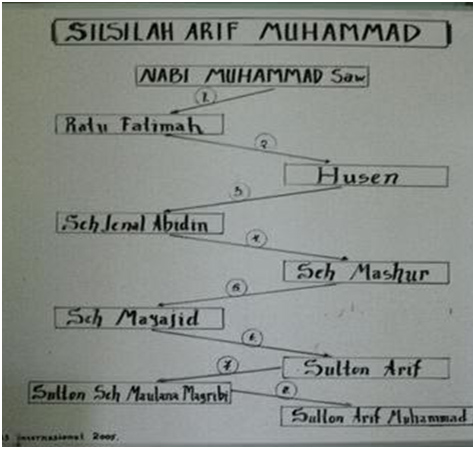 SILSILAH ARIF MUHAMMAD
NABI MUHAMMAD Saw
1.
Ratu Fatimah
2
Husen
3
Sch Jenal Abidin
4
Sch Mashur
5
Sch Mayajid
6
Sulton Arif
7
Sulton Sch Maulana Magribi
8
Sulton Arif Muhammad
internasional 2005.